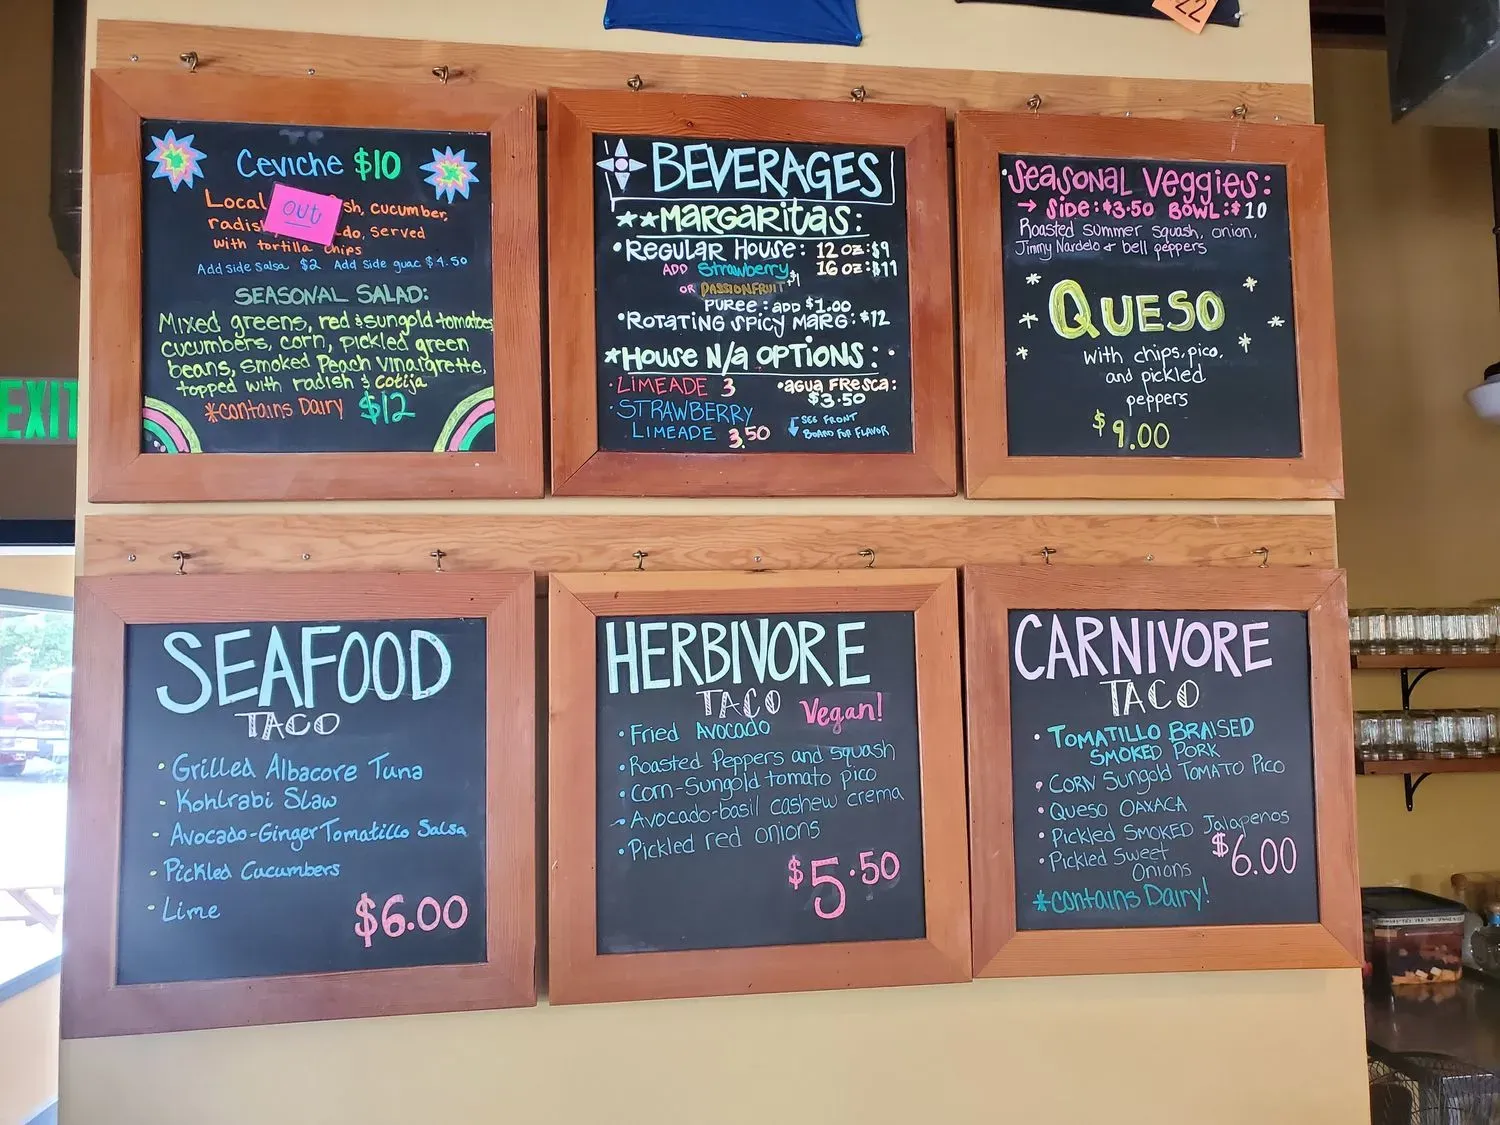 22
EXIT
Ceviche $10
Local sh, cucumber,
out
radish do, served
with tortilla chips
Add side salsa $2 Add side guac $4.50
SEASONAL SALAD:
Mixed greens, red & sungold tomatoes
cucumbers, corn, pickled green
beans, smoked Peach vinaigrette,
topped with radish & cotija
*contains Dairy $12
BEVERAGES
**MARGARITAS:
•REGULAR HOUSE: 12 oz:$9
ADD Strawberry 16 oz:$11
OR PASSIONFRUIT +$1
PUREE: ADD $1.00
•ROTATING SPICY MARG: $12
*HOUSE N/A OPTIONS:
•LIMEADE 3
•STRAWBERRY
LIMEADE 3.50
•AGUA FRESCA:
$3.50
SEE FRONT
BOARD FOR FLAVOR
SEASONAL VEGGIES:
→ SIDE:$3.50 BOWL:$10
Roasted summer squash, onion,
Jimmy Nardelo + bell peppers
QUESO
with chips, pico,
and pickled
peppers
$9.00
SEAFOOD
TACO
• Grilled Albacore Tuna
• Kohlrabi Slaw
• Avocado-Ginger Tomatillo Salsa
• Pickled Cucumbers
• Lime
$6.00
HERBIVORE
TACO Vegan!
• Fried Avocado
• Roasted Peppers and squash
• Corn-Sungold tomato pico
• Avocado-basil cashew crema
• Pickled red onions
$5.50
CARNIVORE
TACO
• TOMATILLO BRAISED
SMOKED PORK
• CORN SUNGOLD TOMATO PICO
• QUESO OAXACA
• Pickled SMOKED Jalapenos
• Pickled Sweet
Onions
$6.00
*contains Dairy!